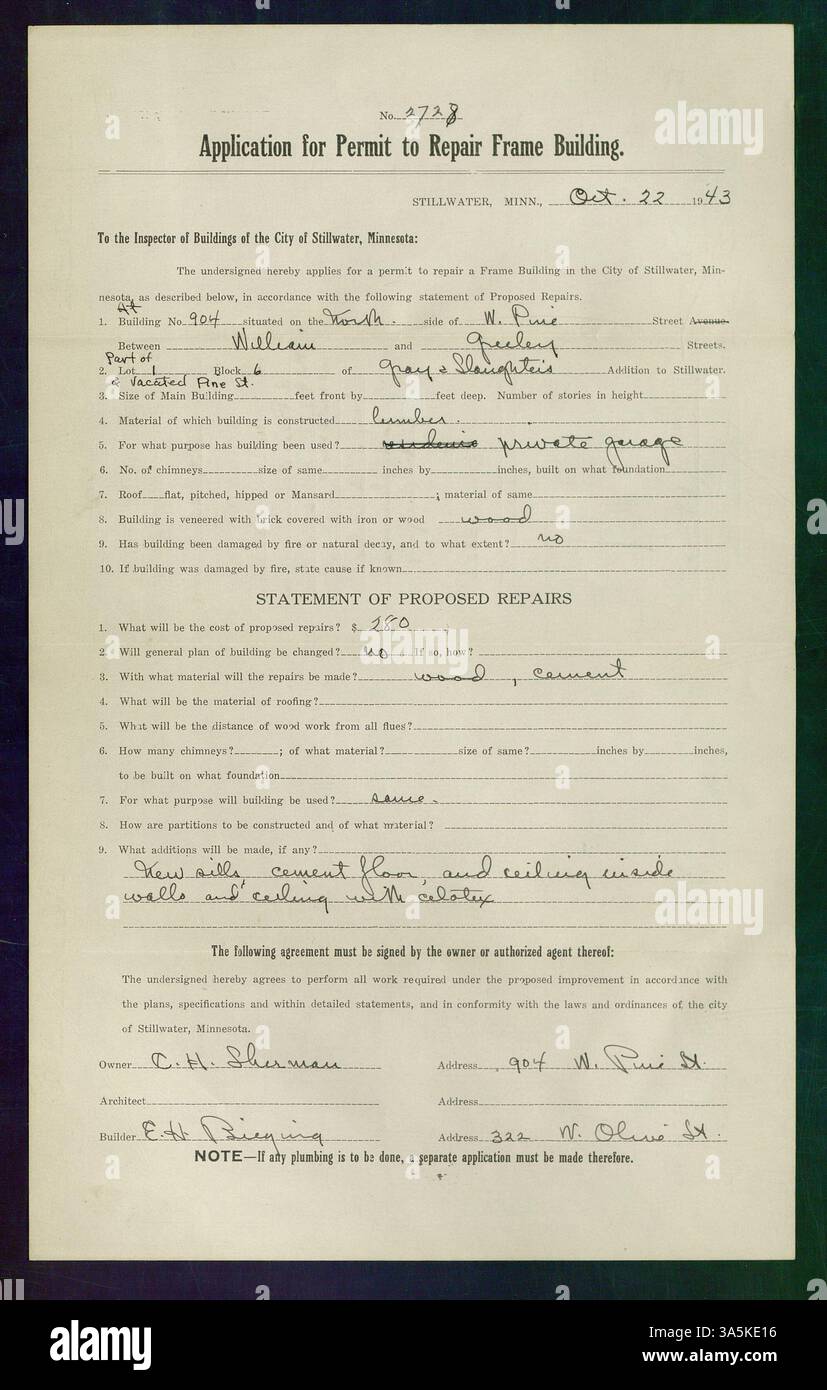 No. 2728
Application for Permit to Repair Frame Building.
STILLWATER, MINN., Oct. 22 1943
To the Inspector of Buildings of the City of Stillwater, Minnesota:
The undersigned hereby applies for a permit to repair a Frame Building in the City of Stillwater, Min-
nesota, as described below, in accordance with the following statement of Proposed Repairs.
At
1. Building No. 904 situated on the North. side of W. Pine Street Avenue
Between William and Greeley Streets.
Part of
2. Lot 1 Block 6 of Gray & Slaughters Addition to Stillwater.
& Vacated Pine St.
3. Size of Main Building feet front by feet deep. Number of stories in height
4. Material of which building is constructed lumber.
5. For what purpose has building been used? private garage
6. No. of chimneys size of same inches by inches, built on what foundation
7. Roof flat, pitched, hipped or Mansard ; material of same
8. Building is veneered with brick covered with iron or wood wood
9. Has building been damaged by fire or natural decay, and to what extent? no
10. If building was damaged by fire, state cause if known
STATEMENT OF PROPOSED REPAIRS
1. What will be the cost of proposed repairs? $ 280
2. Will general plan of building be changed? no If so, how?
3. With what material will the repairs be made? wood, cement
4. What will be the material of roofing?
5. What will be the distance of wood work from all flues?
6. How many chimneys? ; of what material? size of same? inches by inches,
to be built on what foundation
7. For what purpose will building be used? same.
8. How are partitions to be constructed and of what material?
9. What additions will be made, if any?
New sills, cement floor, and ceiling inside
walls and ceiling with celotex
The following agreement must be signed by the owner or authorized agent thereof:
The undersigned hereby agrees to perform all work required under the proposed improvement in accordance with
the plans, specifications and within detailed statements, and in conformity with the laws and ordinances of the city
of Stillwater, Minnesota.
Owner C. H. Sherman Address 904 W. Pine St.
Architect Address
Builder E. H. Bieging Address 322 W. Olive St.
NOTE—If any plumbing is to be done, a separate application must be made therefore.
alamy
Image ID: 3A5KE16
www.alamy.com